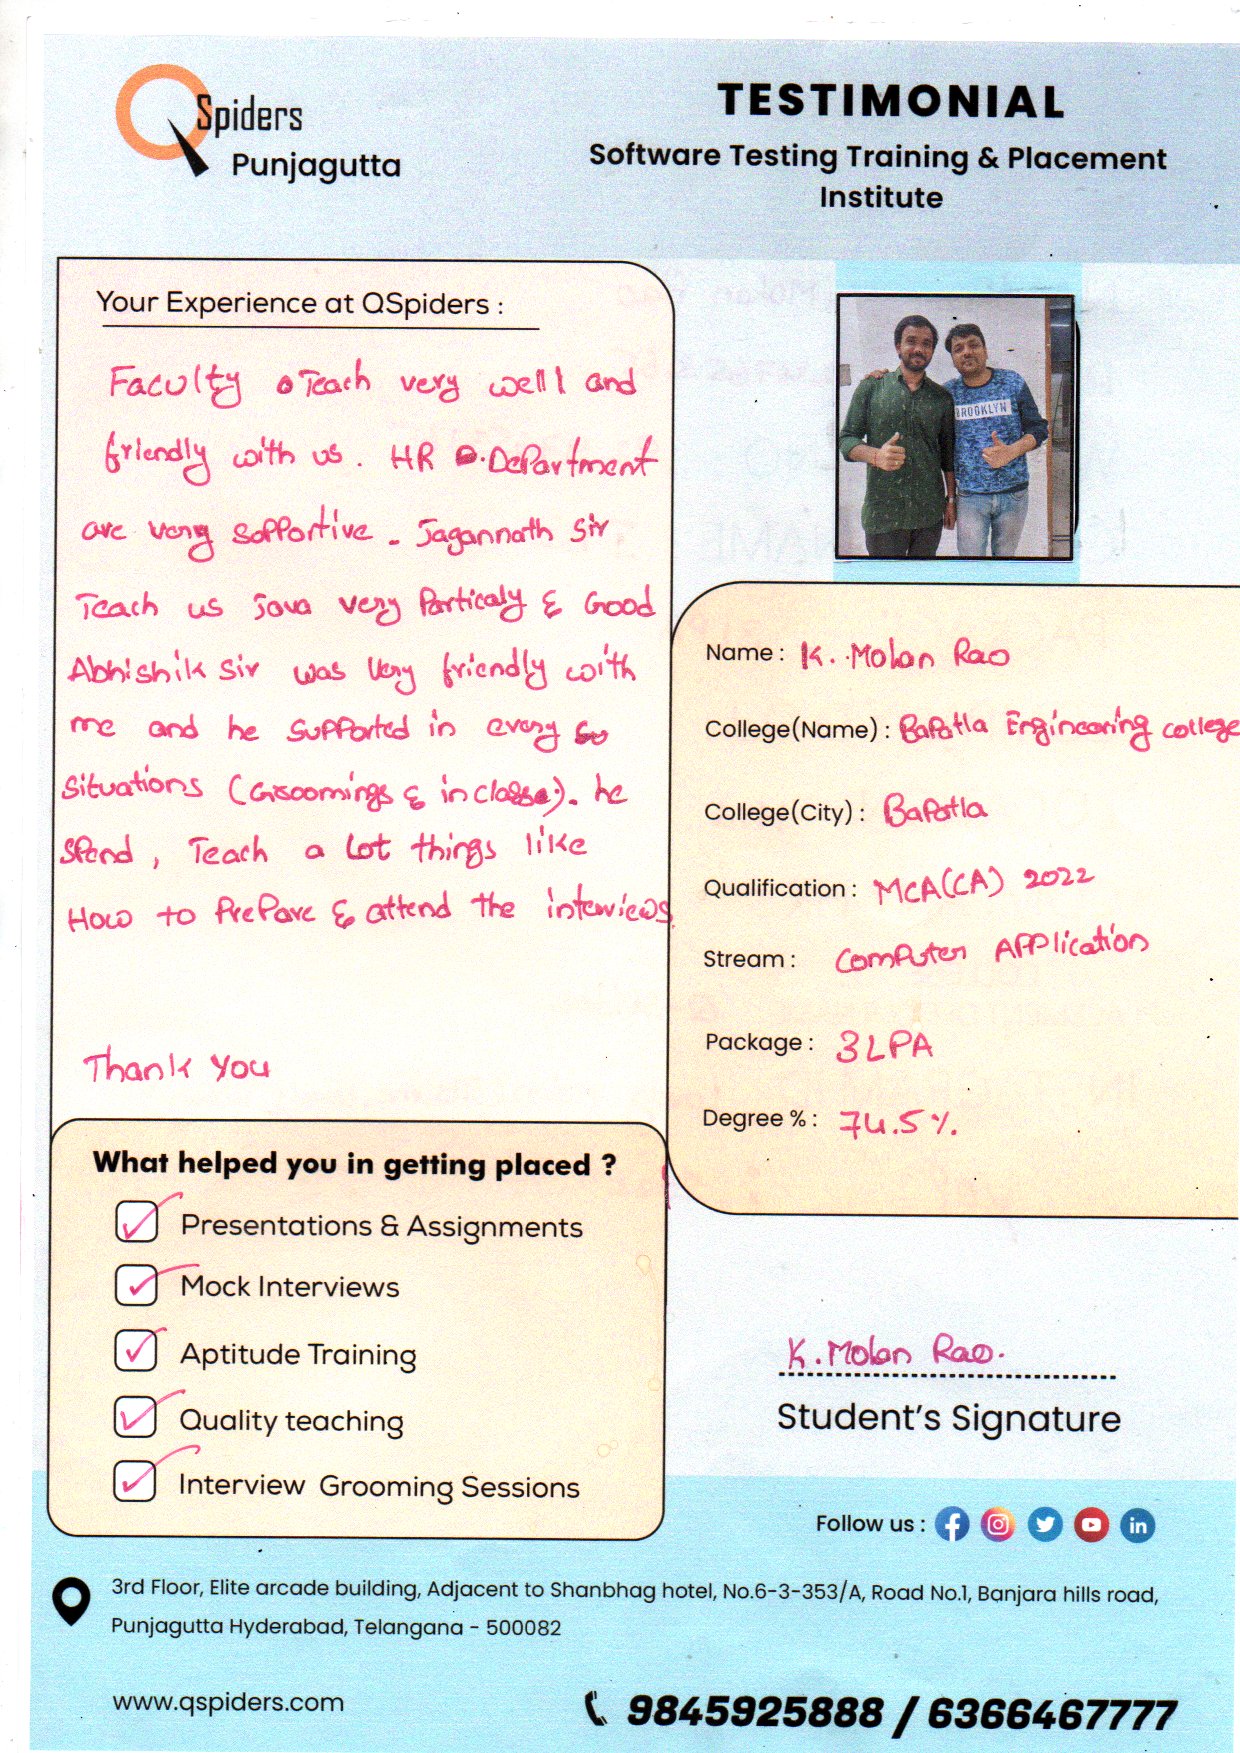 QSpiders
Punjagutta
TESTIMONIAL
Software Testing Training & Placement
Institute
Your Experience at QSpiders :
Faculty Teach very well and
friendly with us. HR Department
are very sopportive. Jagannath Sir
Teach us Java very Particaly & Good
Abhishik Sir was very friendly with
me and he supported in every
situations (Groomings & in classe). he
spend, Teach a lot things like
How to PrePare & attend the interviews.
Thank you
BROOKLYN
Name : K. Molan Rao
College(Name) : Bapatla Engineering college
College(City) : Bapatla
Qualification : MCA(CA) 2022
Stream : Computer Application
Package : 3 LPA
Degree % : 74.5 %.
What helped you in getting placed ?
Presentations & Assignments
Mock Interviews
Aptitude Training
Quality teaching
Interview Grooming Sessions
K. Molan Rao.
Student's Signature
Follow us :
3rd Floor, Elite arcade building, Adjacent to Shanbhag hotel, No.6-3-353/A, Road No.1, Banjara hills road,
Punjagutta Hyderabad, Telangana - 500082
www.qspiders.com
9845925888 / 6366467777